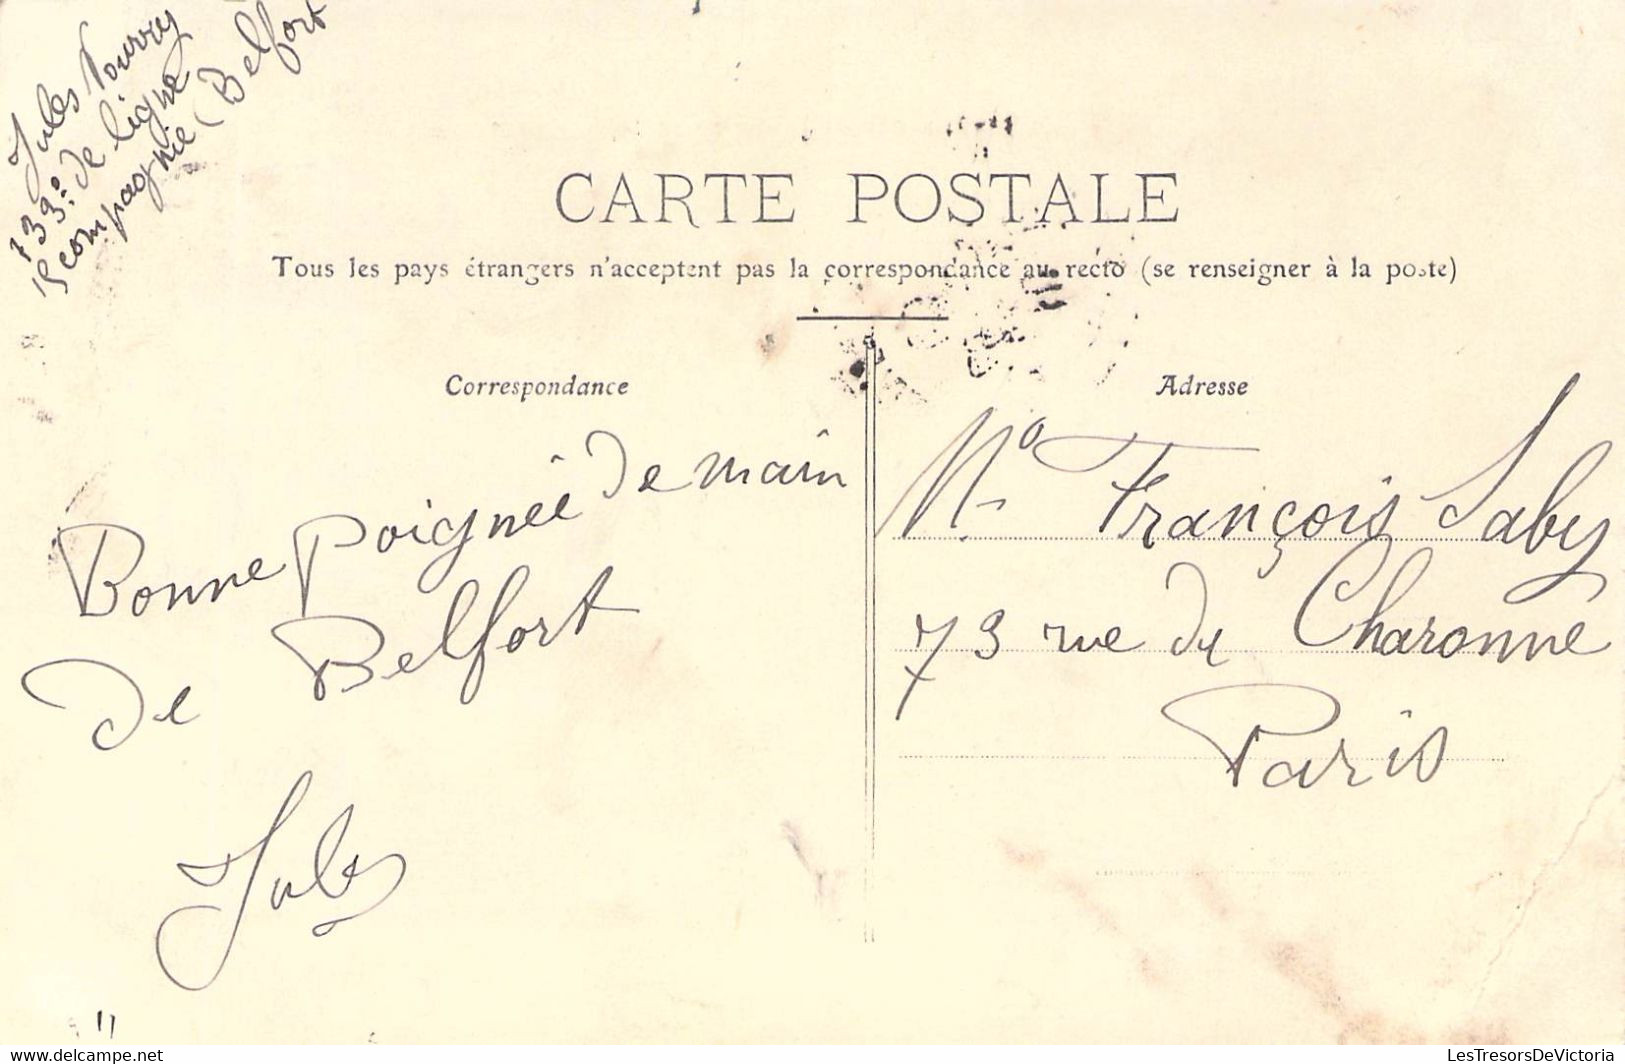 Jules Pourrey
133e de ligne
15 compagnie (Belfort
CARTE POSTALE
Tous les pays étrangers n'acceptent pas la correspondance au recto (se renseigner à la poste)
Correspondance
Bonne Poignée de main
de Belfort
Jules
Adresse
Mr François Saby
73 rue de Charonne
Paris
LesTresorsDeVictoria
delcampe.net